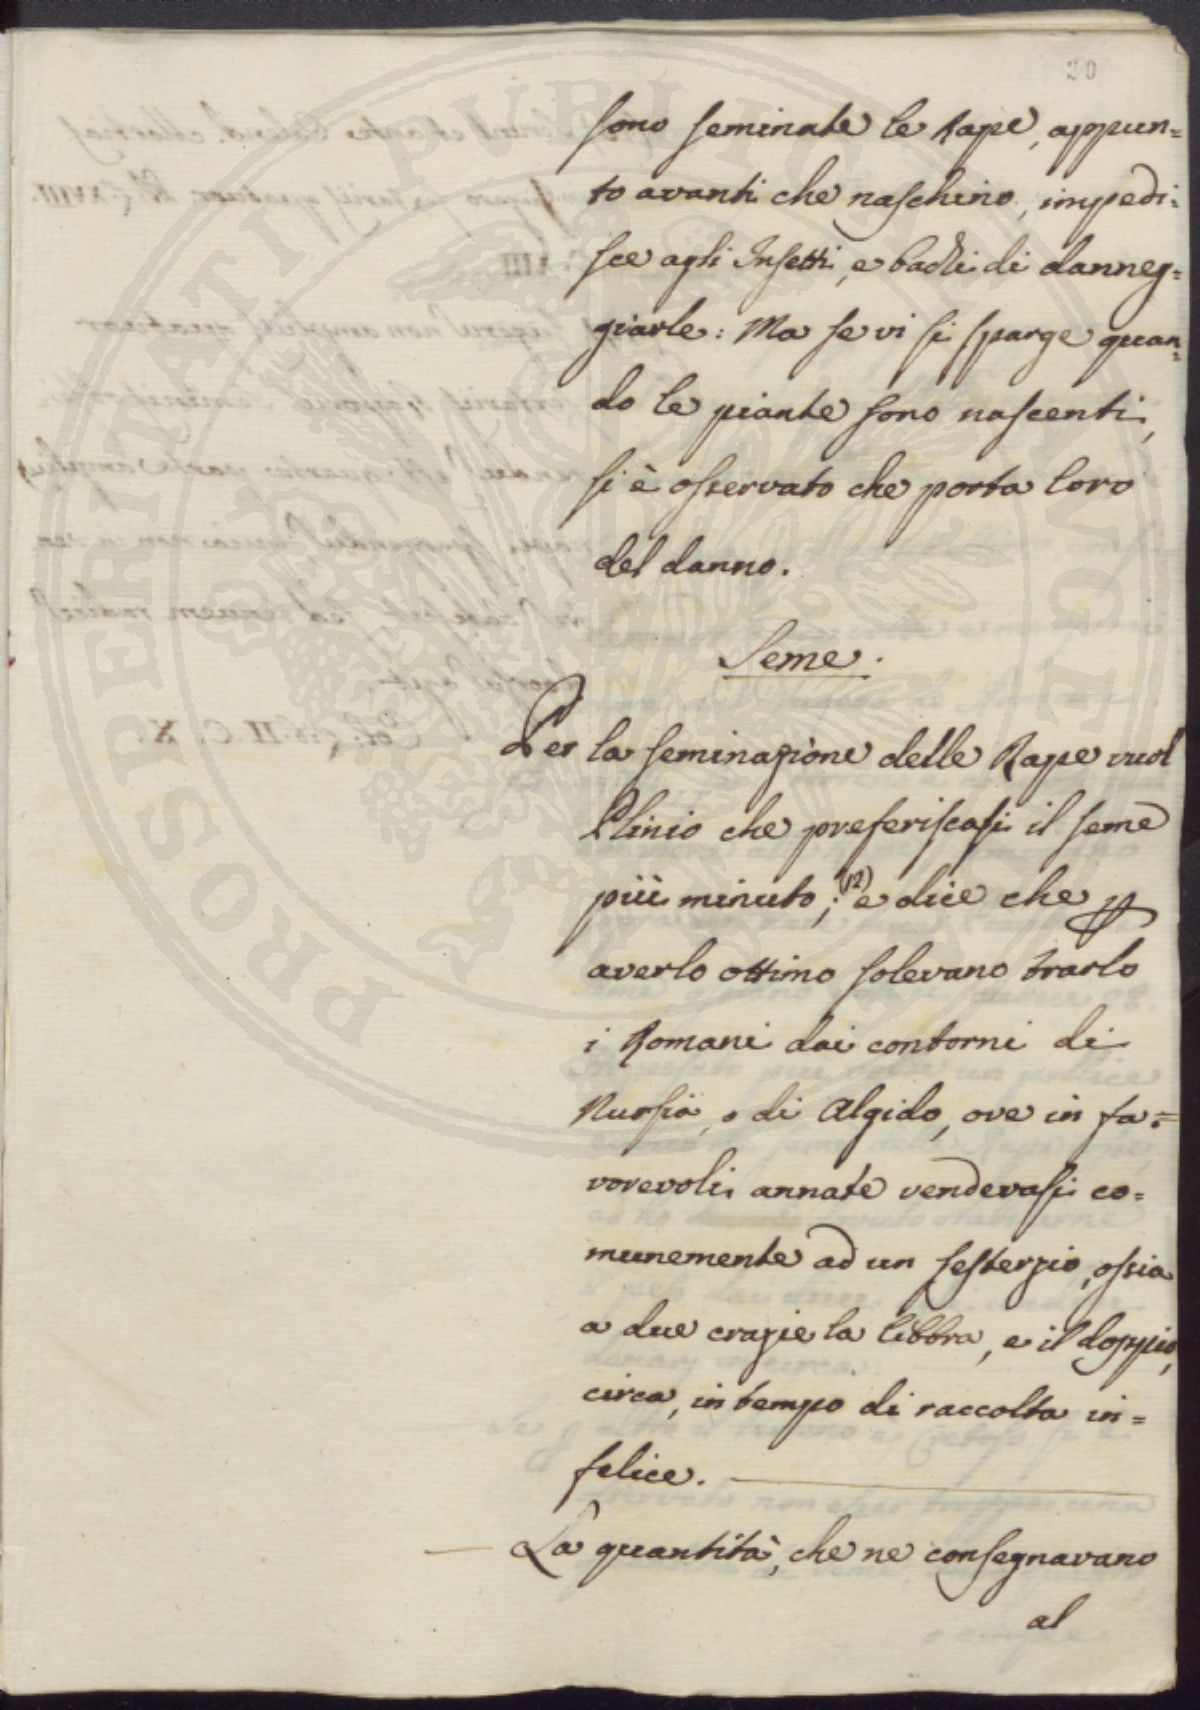 20
sono seminate le Rape, appun=
to avanti che naschino, impedi=
sce agli Insetti, e bachi di danneg=
giarle: Ma se vi si sparge quan=
do le piante sono nascenti,
si è osservato che porta loro
del danno.
Seme.
Per la seminazione delle Rape vuol
Plinio che preferiscasi il seme
più minuto; (12) e dice che p
averlo ottimo solevano trarlo
i Romani dai contorni di
Nursia, o di Algido, ove in fa=
vorevoli annate vendevasi co=
munemente ad un sesterzio, ossia
a due crazie la libbra, e il doppio,
circa, in tempo di raccolta in=
felice.
La quantità, che ne consegnavano
al
PROSPERITATI PUBLICAE AUGENDAE